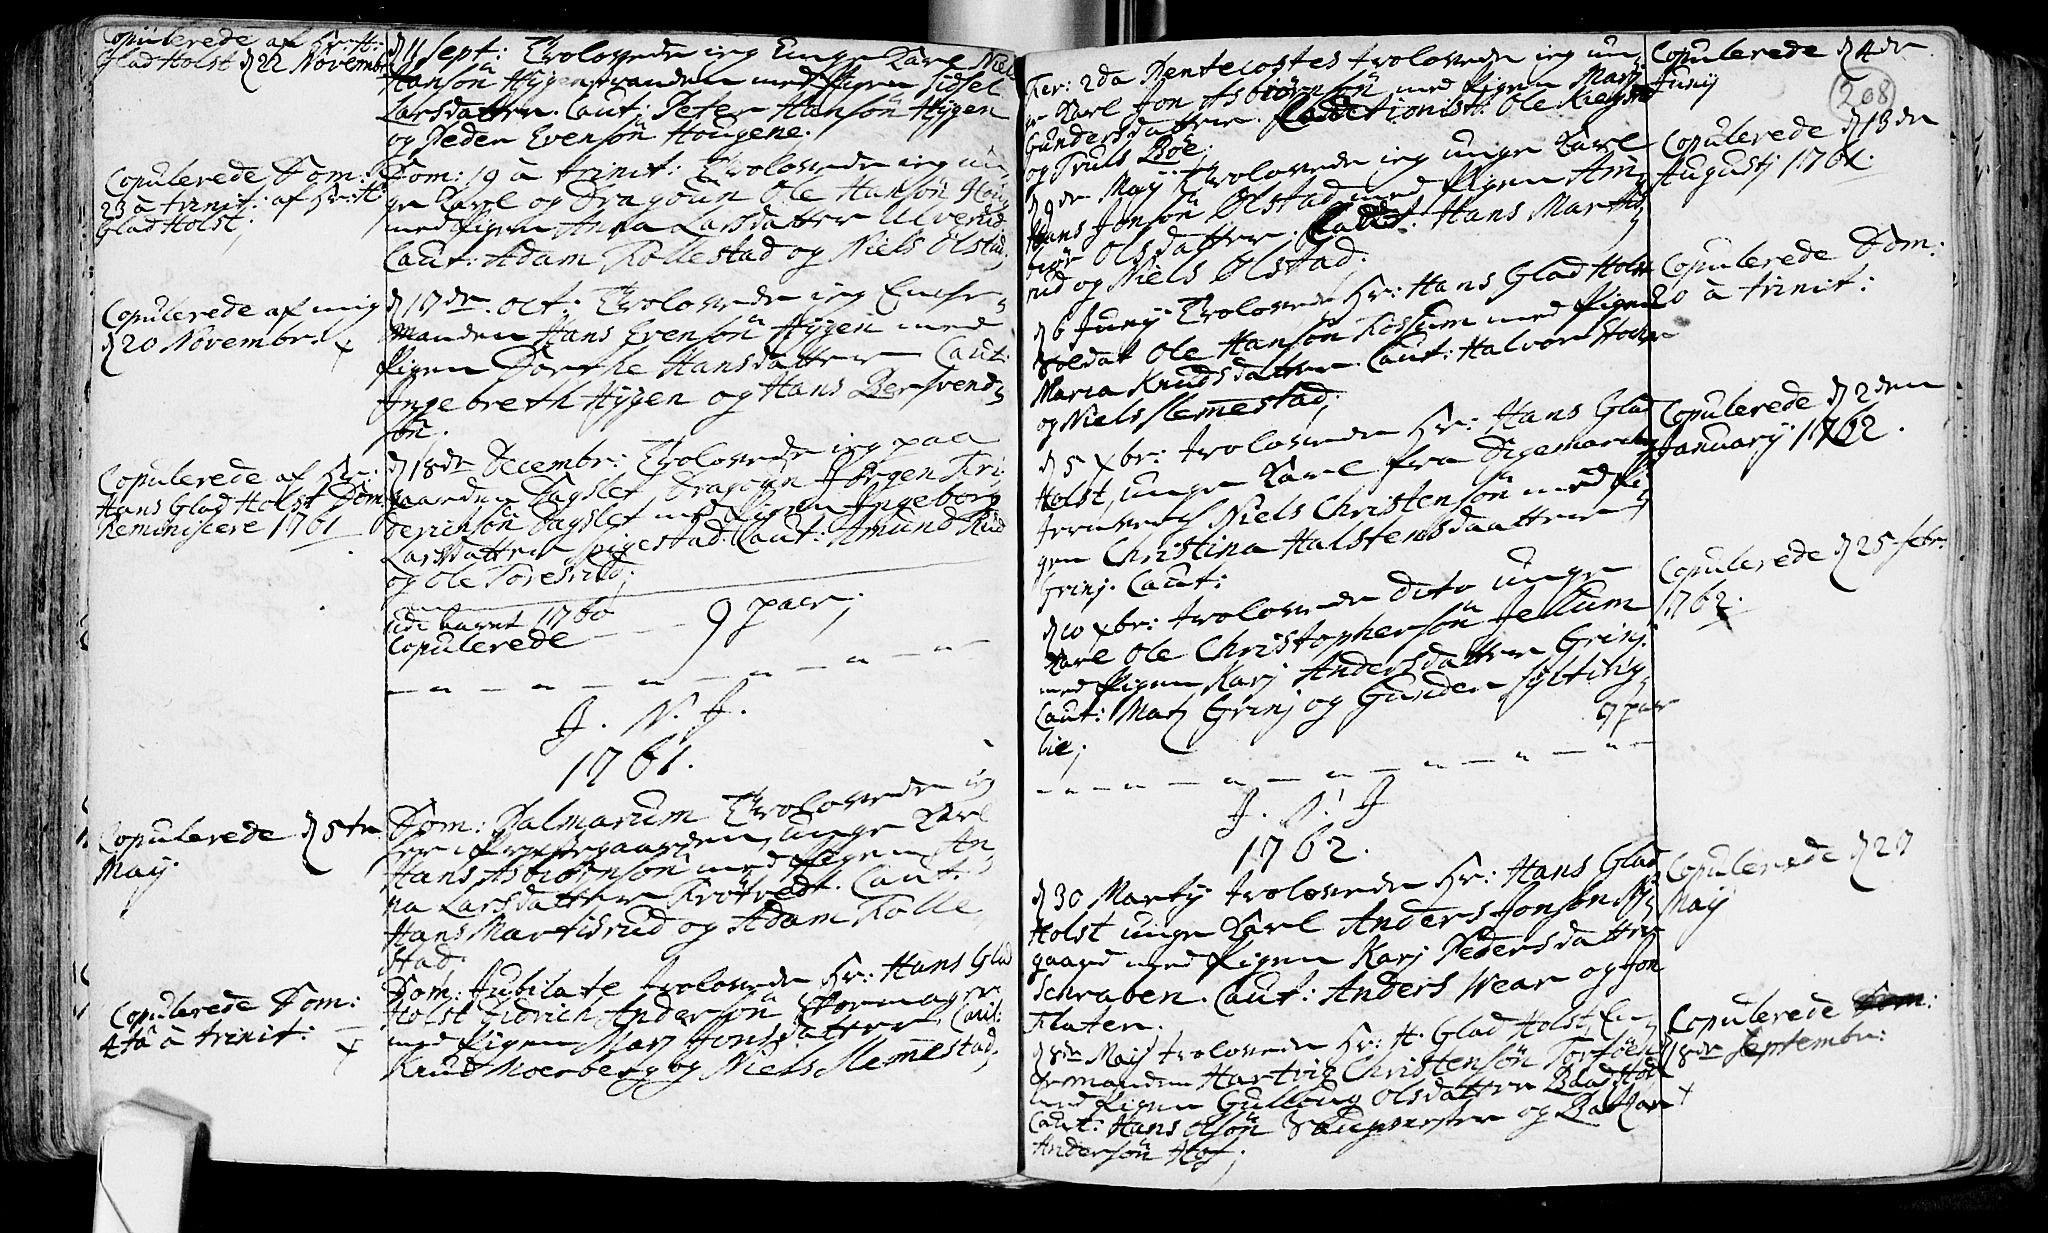 Copulerede af Hr: H:
Glad Holst d 22 Novembr
d 11 Sept: Trolovede ieg Unge Karl Niels
Hansön Hÿgen med Pigen Sidsel
Larsdatter. Caut: Peter Hansön Hÿgen
og Peder Evensön Hougene.
Copulerede Dom:
23 à trinit: af Hr: H:
Glad Holst;
Dom: 19 à trinit: Trolovede ieg un,
ge Karl og Dragoun Ole Hansön
med Pigen Anna Larsdatter Ulverud
Caut: Adam Tollestad og Niels Ølstad;
Copulerede af mig
d 20 Novembr:
d 17de oct: Trolovede ieg Enche,
manden Hans Evensön Hÿgen med
Pigen Dorthe Hansdatter Caut:
Ingebreth Hÿgen og Hans Bersvend,
sön.
Copulerede af Hr:
Hans Glad Holst Dom
Reminiscere 1761
d 18de Decembr: Trolovede ieg paa
gaarden Dagslet, Dragoun Jörgen Fri,
derichsön Dagslet med Pigen Ingeborg
Larsdatter Spigestad. Caut: Amund Rud
og Ole Toresrud;
udi baret 1760
Copulerede - - - 9 paar;
J. N. J.
1761.
Copulerede d 5te
Maÿ
Dom: Palmarum Trolovede ieg
her i Præstegaarden, unge Karl
Hans Asbiörnsön med Pigen An,
na Larsdatter Trötvedt. Caut:
Hans Martisrud og Adam Tolle,
stad
Copulerede Dom:
4ta à trinit:
Dom: Jubilate trolovede Hr: Hans Glad
Holst Didrich Andersön
med Pigen Marj Jonsdatter, Caut:
Knud Moerberg og Niels Slemmestad;
Fer: 2da Pentecostes trolovede ieg un,
ge Karl Jon Asbiörnsön med Pigen Marj
Gundersdatter. Cautionist: Ole
og Truls Böe;
Copulerede d 4de
Junÿ
208
d 9de Maÿ Trolovede ieg unge Karl
Hans Jonsön Ølstad med Pigen Am,
biör Olsdatter. Caut: Hans Martis,
rud og Niels Ølstad;
Copulerede d 13de
Augustj 1761.
d 6 Junÿ Trolovede Hr: Hans Glad Holst
Soldat Ole Hansön Rossum med Pigen
Maria Knudsdatter. Caut: Halvor
og Niels Slemmestad;
Copulerede Dom:
20 à trinit:
d 5 xbr: trolovede Hr: Hans Glad
Holst, unge Karl fra Digemarchen
Niels Christensön med Pi,
gen Christina Halstensdaatter
Grinj. Caut:
Copulerede d 2den
Januarÿ 1762.
d 10 xbr: trolovede dito unge
Karl Ole Christophersön Jellum
med Pigen Karj Andersdatter Grinj
Caut: Matz Grinj og Gunder Sÿlting,
lie;
9 paar
Copulerede d 25 febr:
1762.
J. N. J
1762.
d 30 Martÿ trolovede Hr: Hans Glad
Holst unge Karl Anders Jonsön Nÿ,
gaard med Pigen Karj Pedersdatter
Schraben. Caut: Anders Wear og Jon
Flaten.
Copulerede d 27
Maÿ
d 8de Maÿ trolovede Hr: H. Glad Holst, En,
chemanden Hartvig Christensön
med Pigen Gullaug Olsdatter Baadstöe
Caut: Hans Olsön og Balzar
Andersön Hof;
Copulerede Dom:
18de Septembr: